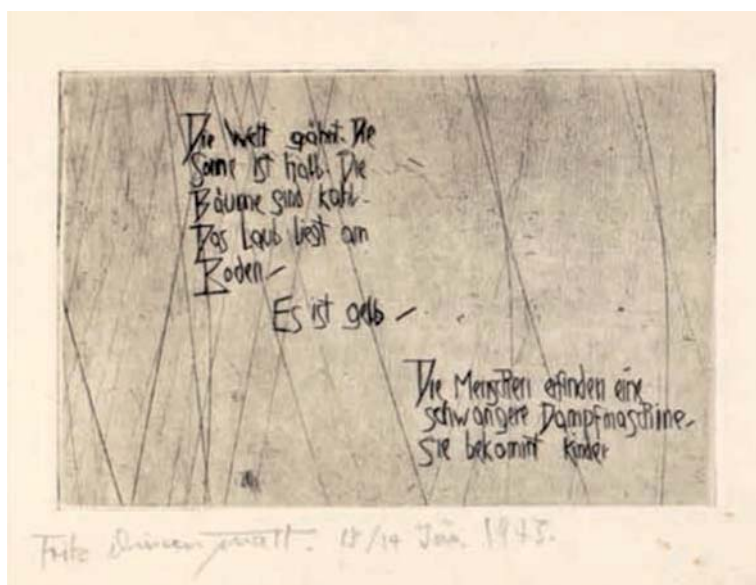 Die Welt gähnt. Die
Sonne ist halb. Die
Bäume sind kahl-
Das Laub liegt am
Boden-
Es ist gelb -
Die Menschen erfinden eine
schwangere Dampfmaschine-
Sie bekommt Kinder
Fritz Dürrenmatt. 1943.